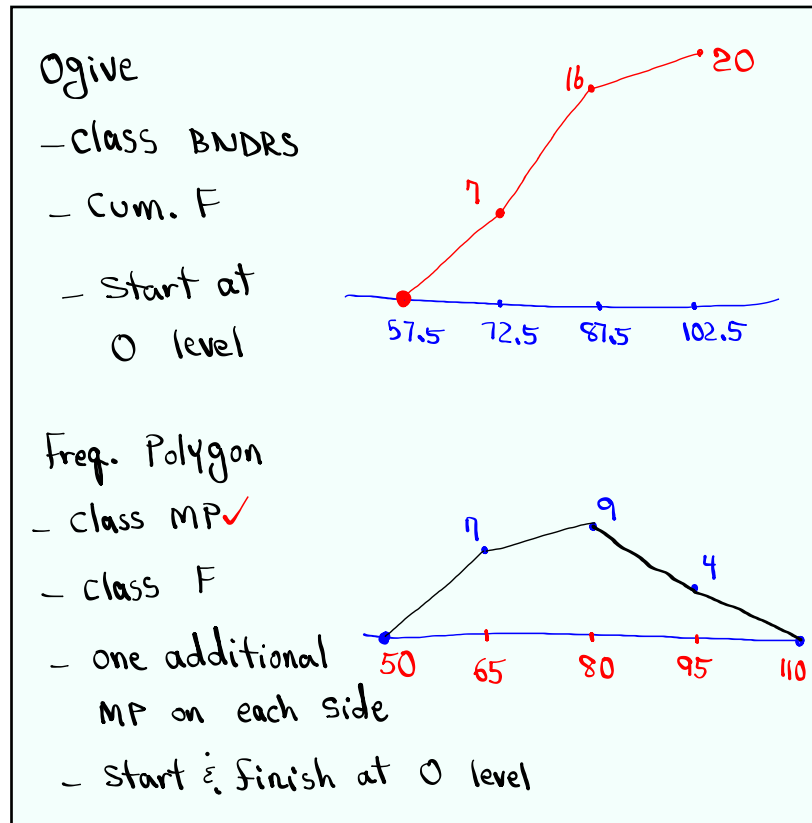 Ogive
- class BNDRS
- Cum. F
- Start at
0 level
20
16
7
57.5 72.5 87.5 102.5
Freq. Polygon
- class MP✓
- class F
- one additional
MP on each side
- Start & finish at 0 level
9
7
4
50 65 80 95 110